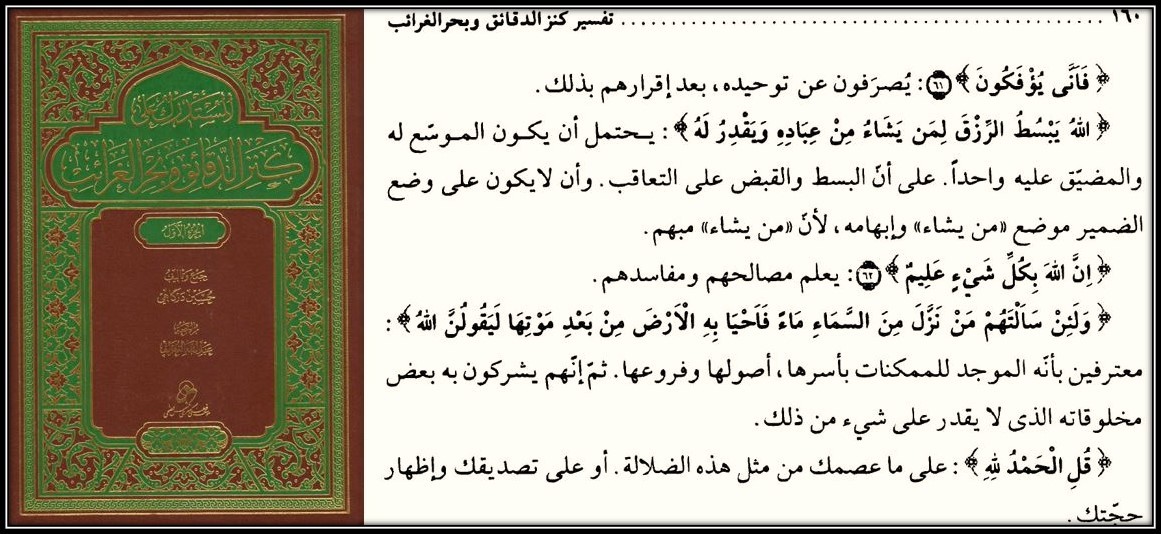 المستدرك على
كنز الدقائق وبحر الغرائب
الجزء الأول
جمع وتأليف
حسين درگاهي
١٦٠ ........................................ تفسير كنز الدقائق وبحر الغرائب
﴿ فَاَنَّى يُؤْفَكُونَ ﴾ (٦١): يُصرَفون عن توحيده، بعد إقرارهم بذلك.
﴿ اللهُ يَبْسُطُ الرِّزْقَ لِمَن يَشَاءُ مِنْ عِبَادِهِ وَيَقْدِرُ لَهُ ﴾: يـحتمل أن يكـون المـوسّع له
والمضيّق عليه واحداً. على أنّ البسط والقبض على التعاقب. وأن لايكون على وضع
الضمير موضع «من يشاء» وإبهامه، لأنّ «من يشاء» مبهم.
﴿ اِنَّ اللهَ بِكُلِّ شَيْءٍ عَلِيمٌ ﴾ (٦٢): يعلم مصالحهم ومفاسدهم.
﴿ وَلَئِنْ سَاَلْتَهُمْ مَنْ نَزَّلَ مِنَ السَّمَاءِ مَاءً فَاَحْيَا بِهِ الْاَرْضَ مِنْ بَعْدِ مَوْتِهَا لَيَقُولُنَّ اللهُ ﴾:
معترفين بأنّه الموجد للممكنات بأسرها، أصولها وفروعها. ثمّ إنّهم يشركون به بعض
مخلوقاته الذى لا يقدر على شيء من ذلك.
﴿ قُلِ الْحَمْدُ لِلهِ ﴾: على ما عصمك من مثل هذه الضلالة. أو على تصديقك وإظهار
حجّتك.